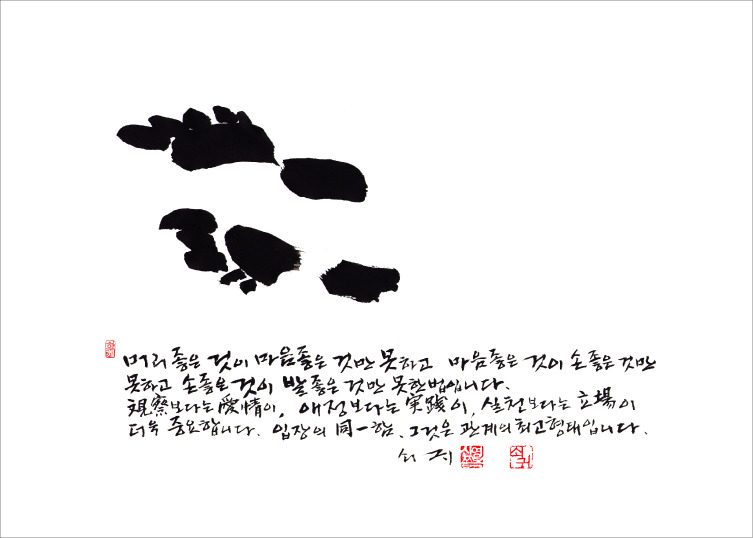 머리 좋은 것이 마음좋은 것만 못하고 마음좋은 것이 손좋은 것만
못하고 손좋은 것이 발좋은 것만 못한법입니다.
觀察보다는 愛情이, 애정보다는 実踐이, 실천보다는 立場이
더욱 중요합니다. 입장의 同一함, 그것은 관계의 최고형태입니다.
쇠귀